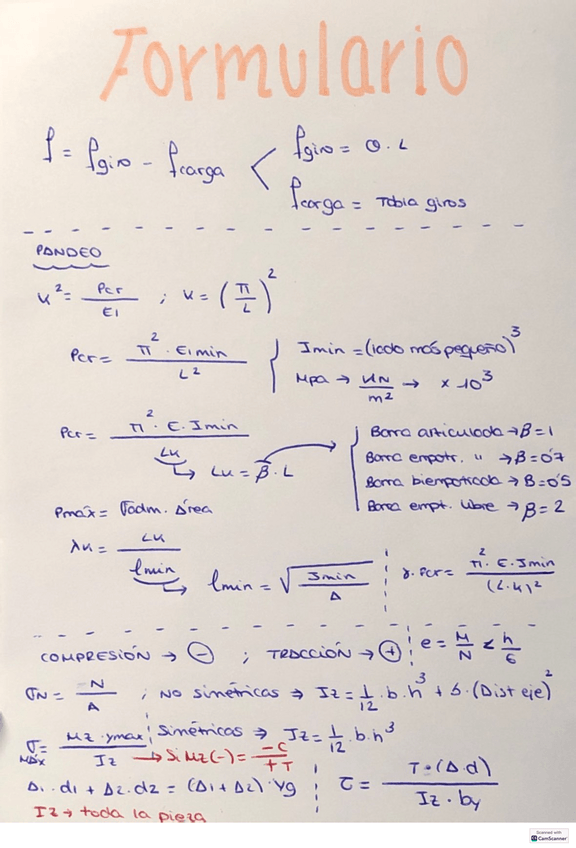 Formulario
f = fgiro - fcarga < fgiro = θ · L
fcarga = Tabla giros
PANDEO
k² = Pcr / EI ; k = (π / L)²
Pcr = π² · EImin / L² { Imin = (lado más pequeño)³
Mpa → kN / m² → × 10³
Pcr = π² · E · Imin / Lk → Lk = β · L
Barra articulada → β = 1
Barra empotr. " → β = 0'7
Barra biempotrada → β = 0'5
Barra empt. libre → β = 2
Pmáx = σadm. Área
λk = Lk / imin → imin = √(Imin / A)
γ · Pcr = π² · E · Imin / (L · k)²
COMPRESIÓN → ⊖ ; TRACCIÓN → ⊕ e = M / N ≤ h / 6
σN = N / A ; No simétricas ⇒ Iz = 1/12 · b · h³ + A · (Dist eje)²
σMÁX = Mz · ymax / Iz Simétricas ⇒ Iz = 1/12 · b · h³
→ Si Mz(-) = -C / +T
A1 · d1 + A2 · d2 = (A1 + A2) · Yg
τ = T · (A · d) / Iz · by
Iz → toda la pieza
Scanned with
CamScanner